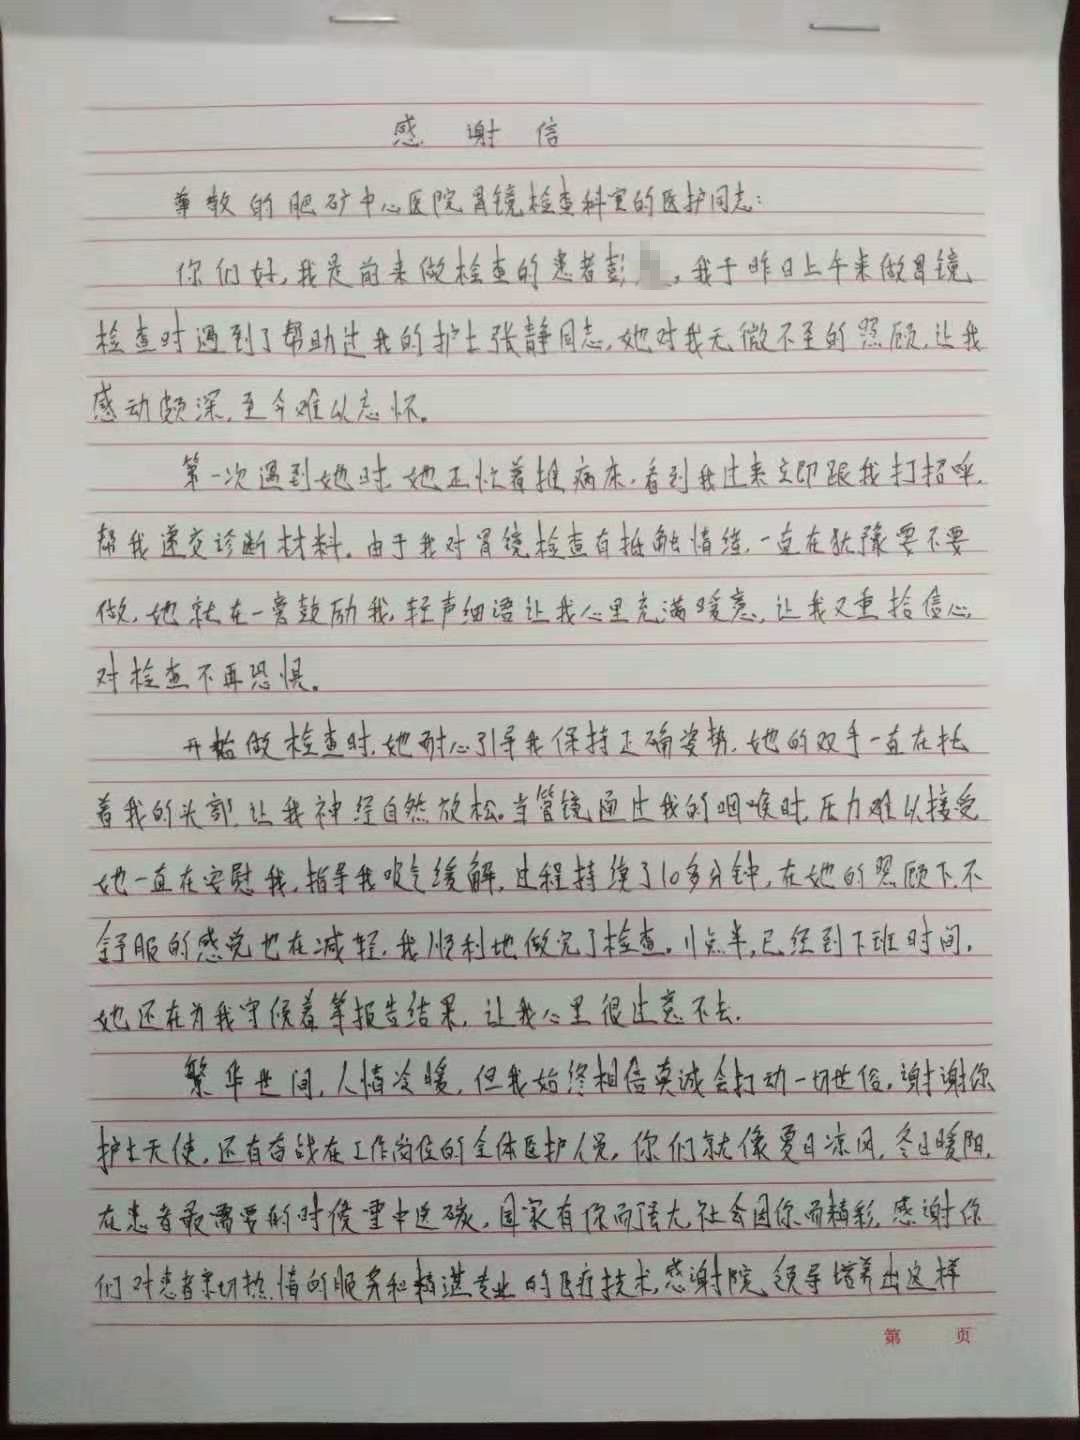 感谢信
尊敬的肥矿中心医院胃镜检查科室的医护同志:
你们好,我是前来做检查的患者彭,我于昨日上午来做胃镜
检查时遇到了帮助过我的护士张静同志,她对我无微不至的照顾,让我
感动颇深,至今难以忘怀。
第一次遇到她时,她正忙着推病床,看到我过来立即跟我打招呼,
帮我递交诊断材料。由于我对胃镜检查有抵触情绪,一直在犹豫要不要
做,她就在一旁鼓励我,轻声细语让我心里充满暖意,让我又重拾信心,
对检查不再恐惧。
开始做检查时,她耐心引导我保持正确姿势,她的双手一直在托
着我的头部,让我神经自然放松。当管镜通过我的咽喉时,压力难以接受
她一直在安慰我,指导我吸气缓解,过程持续了10多分钟,在她的照顾下,不
舒服的感觉也在减轻,我顺利地做完了检查。11点半,已经到下班时间,
她还在为我守候着等报告结果,让我心里很过意不去.
繁华世间,人情冷暖,但我始终相信真诚会打动一切世俗,谢谢你
护士天使,还有奋战在工作岗位的全体医护人员,你们就像夏日凉风,冬日暖阳,
在患者最需要的时侯雪中送碳,国家有你而强大,社会因你而精彩,感谢你
们对患者亲切热情的服务和精湛专业的医疗技术,感谢院领导培养出这样
第 页